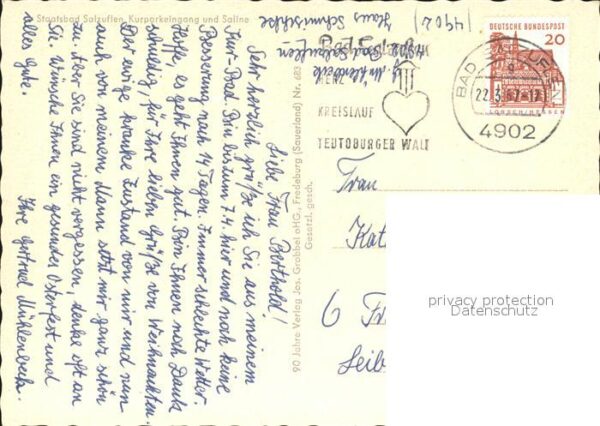 Staatsbad Salzuflen, Kurparkeingang und Saline
Liebe Frau Berthold!
Sehr herzlich grüße ich Sie aus meinem
Kur-Bad. Bin bis zum 7.4. hier und noch keine
Besserung nach 14 Tagen. Immer schlechte Wetter-
Hoffe, es geht Ihnen gut. Bin Ihnen noch Dank
schuldig für Ihre lieben Grüße von Weihnachten,
Der ewige kranke Zustand von mir und nun
auch von meinem Mann setzt mir ganz schön
zu. Aber Sie sind nicht vergessen, denke oft an
Sie. Wünsche Ihnen ein gesundes Osterfest und
alles Gute.
Ihre Gertrud Mühlenbech.
90 Jahre Verlag Jos. Grobbel oHG., Fredeburg (Sauerland) Nr. 683
Gesetzl. gesch.
Mühlenbech
4902 Bad Salzuflen
Haus Schmuschke
(4902)
HERZ
KREISLAUF
TEUTOBURGER WALD
DEUTSCHE BUNDESPOST
20
LORSCH/HESSEN
BAD SALZUFLEN
22.3.67-17
4902
Frau
Kat
6 Fr
Seib
privacy protection
Datenschutz